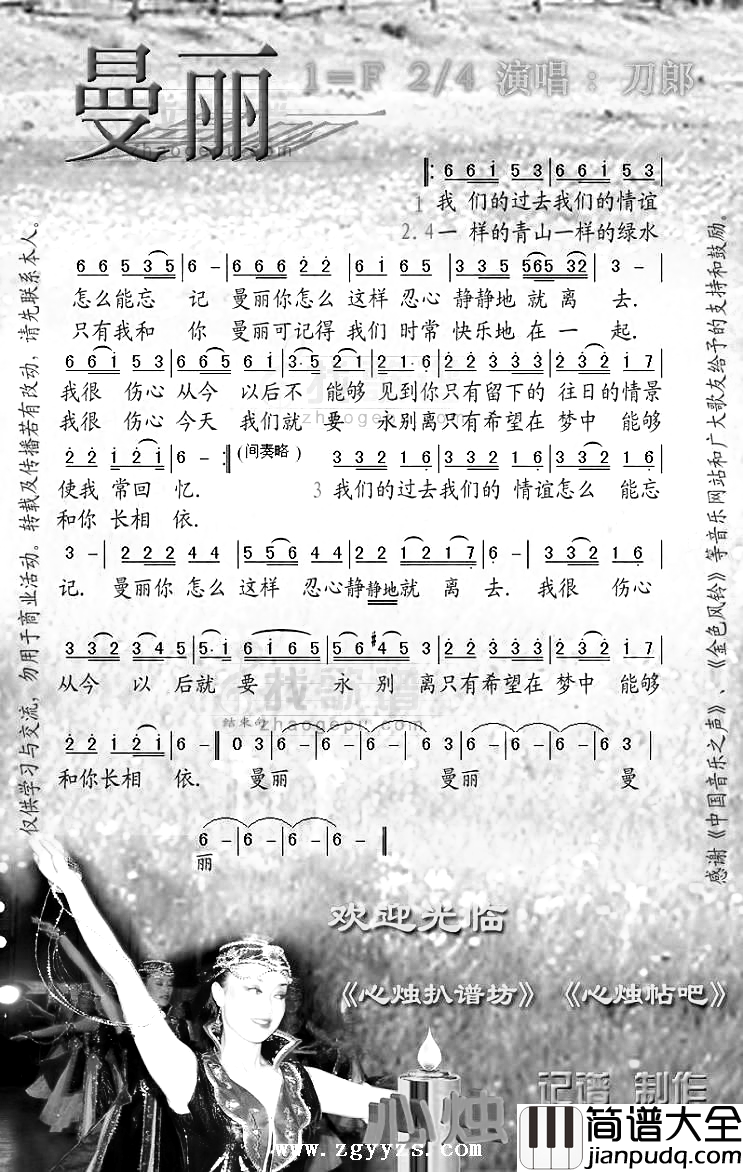 曼丽
1=F 2/4 演唱：刀郎
zhaogepu.com
1 我 们的过去我们的情谊
2.4一 样的青山一样的绿水
怎么能忘 记 曼丽你怎么 这样 忍心 静静地 就 离 去.
只有我和 你 曼丽可记得 我们 时常 快乐地 在 一 起.
我很 伤心 从今 以后不 能够 见到 你只有 留下的 往日的情景
我很 伤心 今天 我们就 要 永别 离只有 希望在 梦中 能够
(间奏略)
使我 常回 忆.
和你 长相 依.
3 我们的过去我们的 情谊怎么 能忘
记. 曼丽你 怎么 这样 忍心静静地就 离 去. 我很 伤心
从今 以 后就 要 永 别 离只有希望在 梦中 能够
结束句
zhaogepu.com
和你长相 依. 曼丽 曼丽 曼
丽
仅供学习与交流，勿用于商业活动。转载及传播若有改动，请先联系本人。
感谢《中国音乐之声》、《金色风铃》等音乐网站和广大歌友给予的支持和鼓励。
欢迎光临
《心烛扒谱坊》《心烛帖吧》
心烛 记谱 制作
www.zgyyzs.com
简谱大全
jianpudq.com